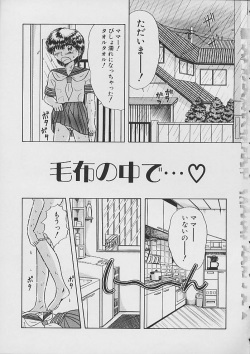 ただいまー!
ママー!
びしょ濡れになっちゃった!
タオルタオル!
ポタ
ポタ
毛布の中で…♡
ママー
いないのー!
もうっ!
ポタ
ポタ